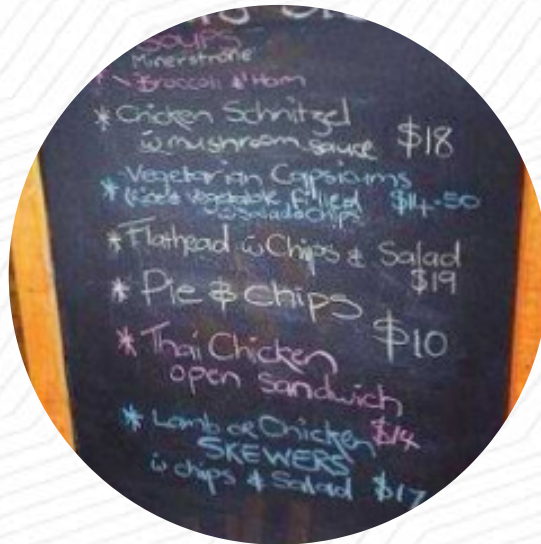 SOUPS
Minerstrone
Broccoli & Ham
* Chicken Schnitzel
w mushroom sauce $18
* Vegetarian Capsicums
Vegetable filled $14-50
w Salad & Chips
* Flathead w Chips & Salad
$19
* Pie & Chips
$10
* Thai Chicken
open sandwich
$14
* Lamb or Chicken
SKEWERS
w chips & Salad $17